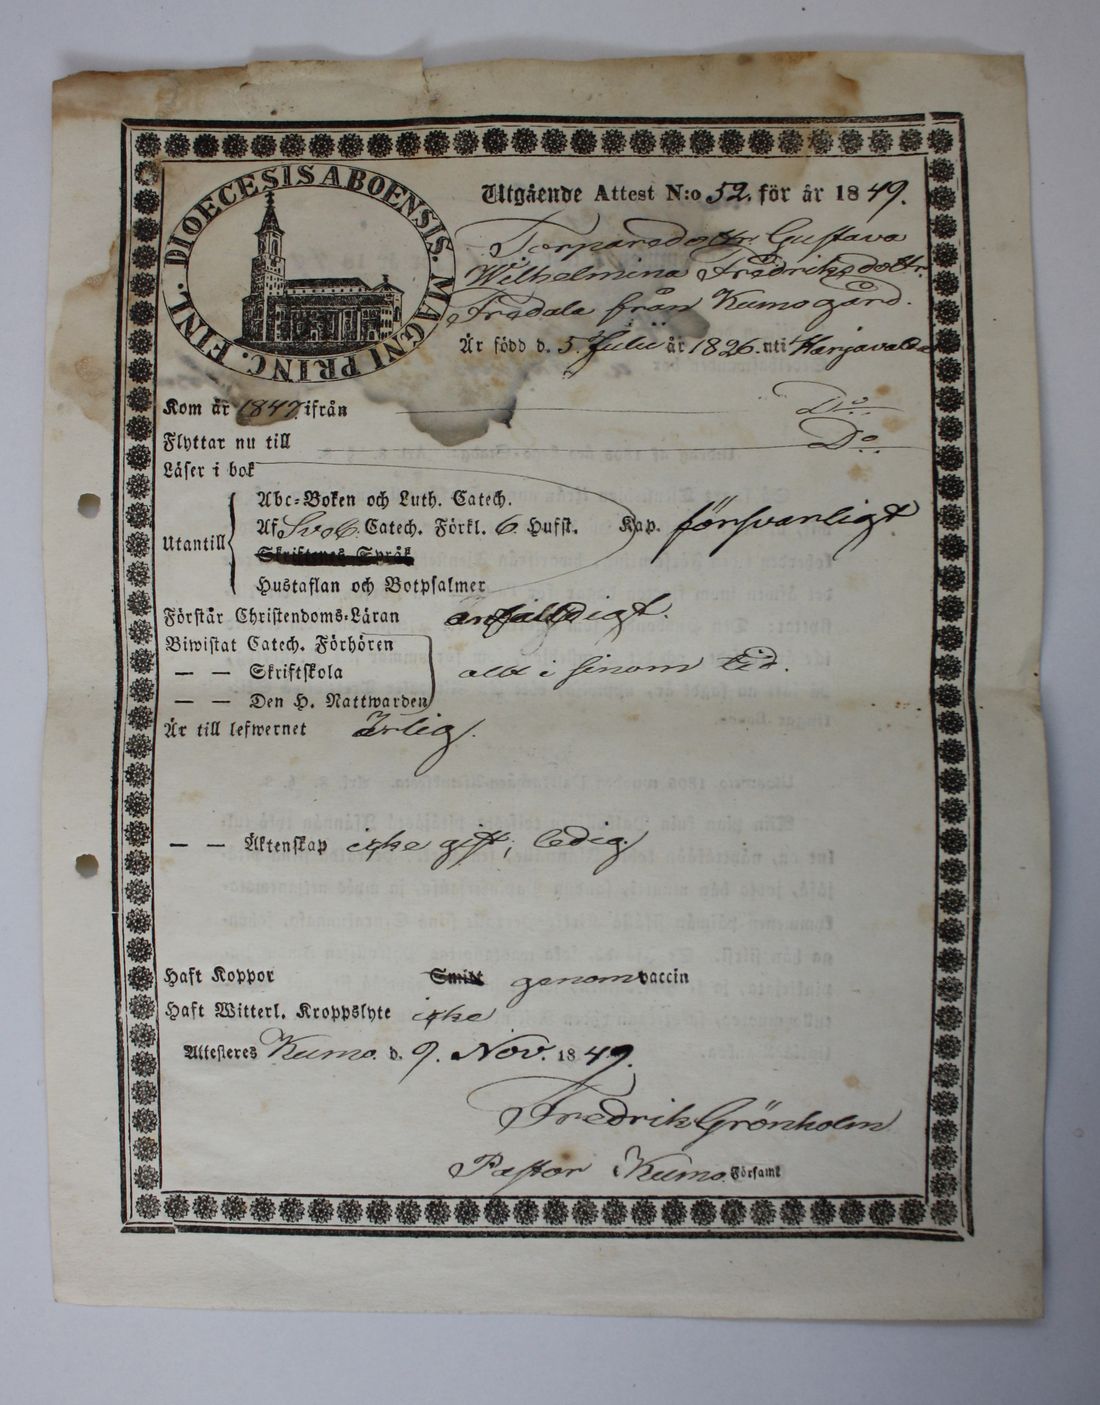 DIOECESIS ABOENSIS. MAGNI PRINC. FINL.
Utgående Attest N:o 52. för år 1849.
Torparedottr. Gustava
Wilhelmina Fredriksdottr.
Fredala från Kumogård.
Är född d. 5. Julii år 1826. uti Harjavalda
Kom år 1847. ifrån Do.
Flyttar nu till Do.
Läser i bok
Utantill
Abc-Boken och Luth. Catech.
Af Sveb. Catech. Förkl. 6 Hufst. Kap. försvarligt
Skriftenes Språk
Hustaflan och Botpsalmer
Förstår Christendoms-Läran enfalldigt.
Biwistat Catech. Förhören
— — Skriftskola allt i sinom tid.
— — Den H. Nattwarden
Är till lefwernet Ärlig.
— — Äktenskap icke gift, ledig.
Haft Koppor Smitt genom vaccin
Haft Witterl. Kroppslyte icke
Attesteres Kumo d. 9. Nov. 1849.
Fredrik Grönholm
Pastor Kumo Församl